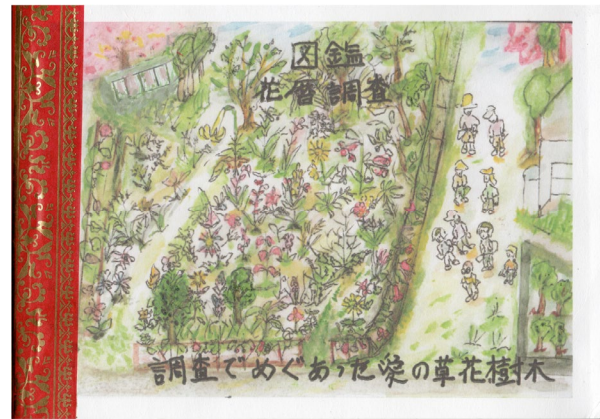 図鑑
花暦調査
調査でめぐあった淀の草花樹木